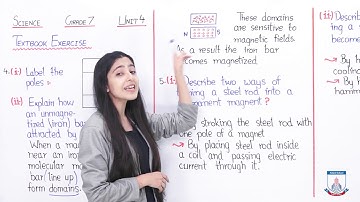 SCIENCE GRADE 7 UNIT 4
TEXTBOOK EXERCISE
4.(i) Label the
poles
(ii) Explain how
an unmagne-
tized (iron) bar
attracted by
When a
near an iron
molecular ma
bar (line up)
form domains.
N S
These domains
are sensitive to
magnetic fields
As a result the iron bar
becomes magnetized
5.(i) Describe two ways of
a steel rod into a
magnet?
stroking the steel rod with
one pole of a magnet
By placing steel rod inside
a coil and passing electric
current through it.
(ii)
ing a
become
By h
coolin
By h
hammer